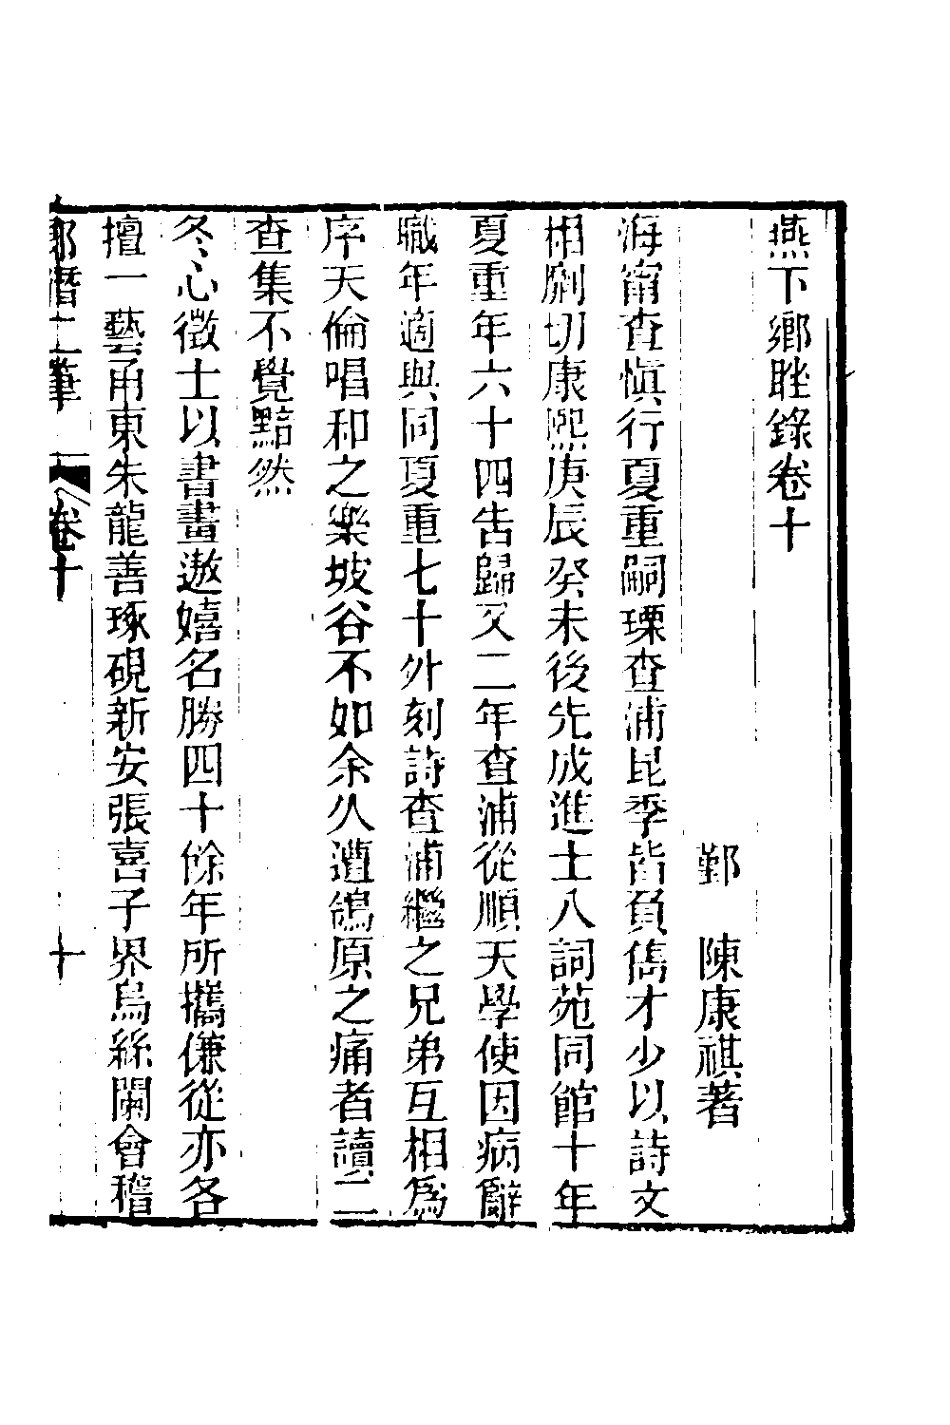 燕下鄉脞錄卷十
鄞　陳康祺著
海甯查愼行夏重嗣瑮查浦昆季皆負儁才少以詩文
相劘切康熙庚辰癸未後先成進士入詞苑同館十年
夏重年六十四告歸又二年查浦從順天學使因病辭
職年適與同夏重七十外刻詩查浦繼之兄弟互相爲
序天倫唱和之樂坡谷不如余久遭鴒原之痛者讀二
查集不覺黯然
冬心徵士以書畫遨嬉名勝四十餘年所攜傔從亦各
擅一藝甬東朱龍善琢硯新安張喜子界烏絲闌會稽
郎潛二筆　卷十　十